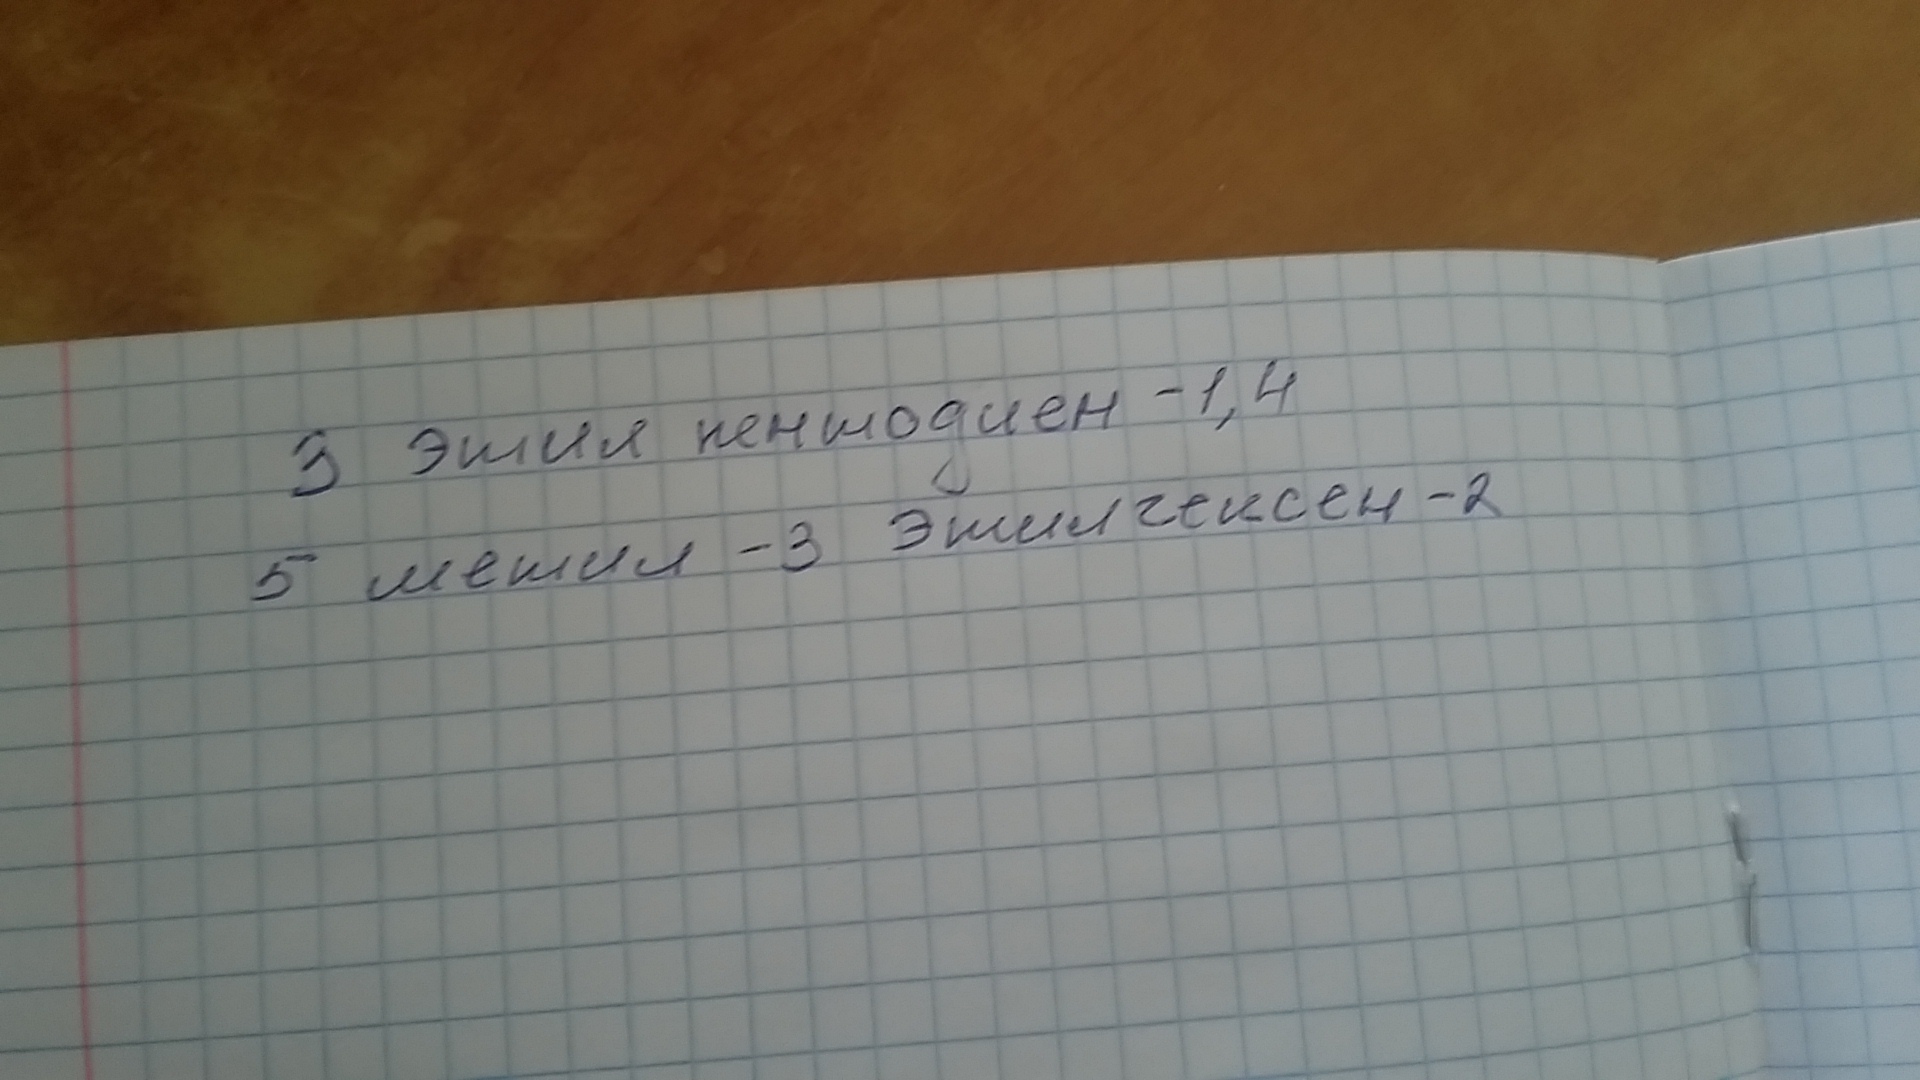 3 этил пентодиен -1,4
5 метил -3 этилгексен -2